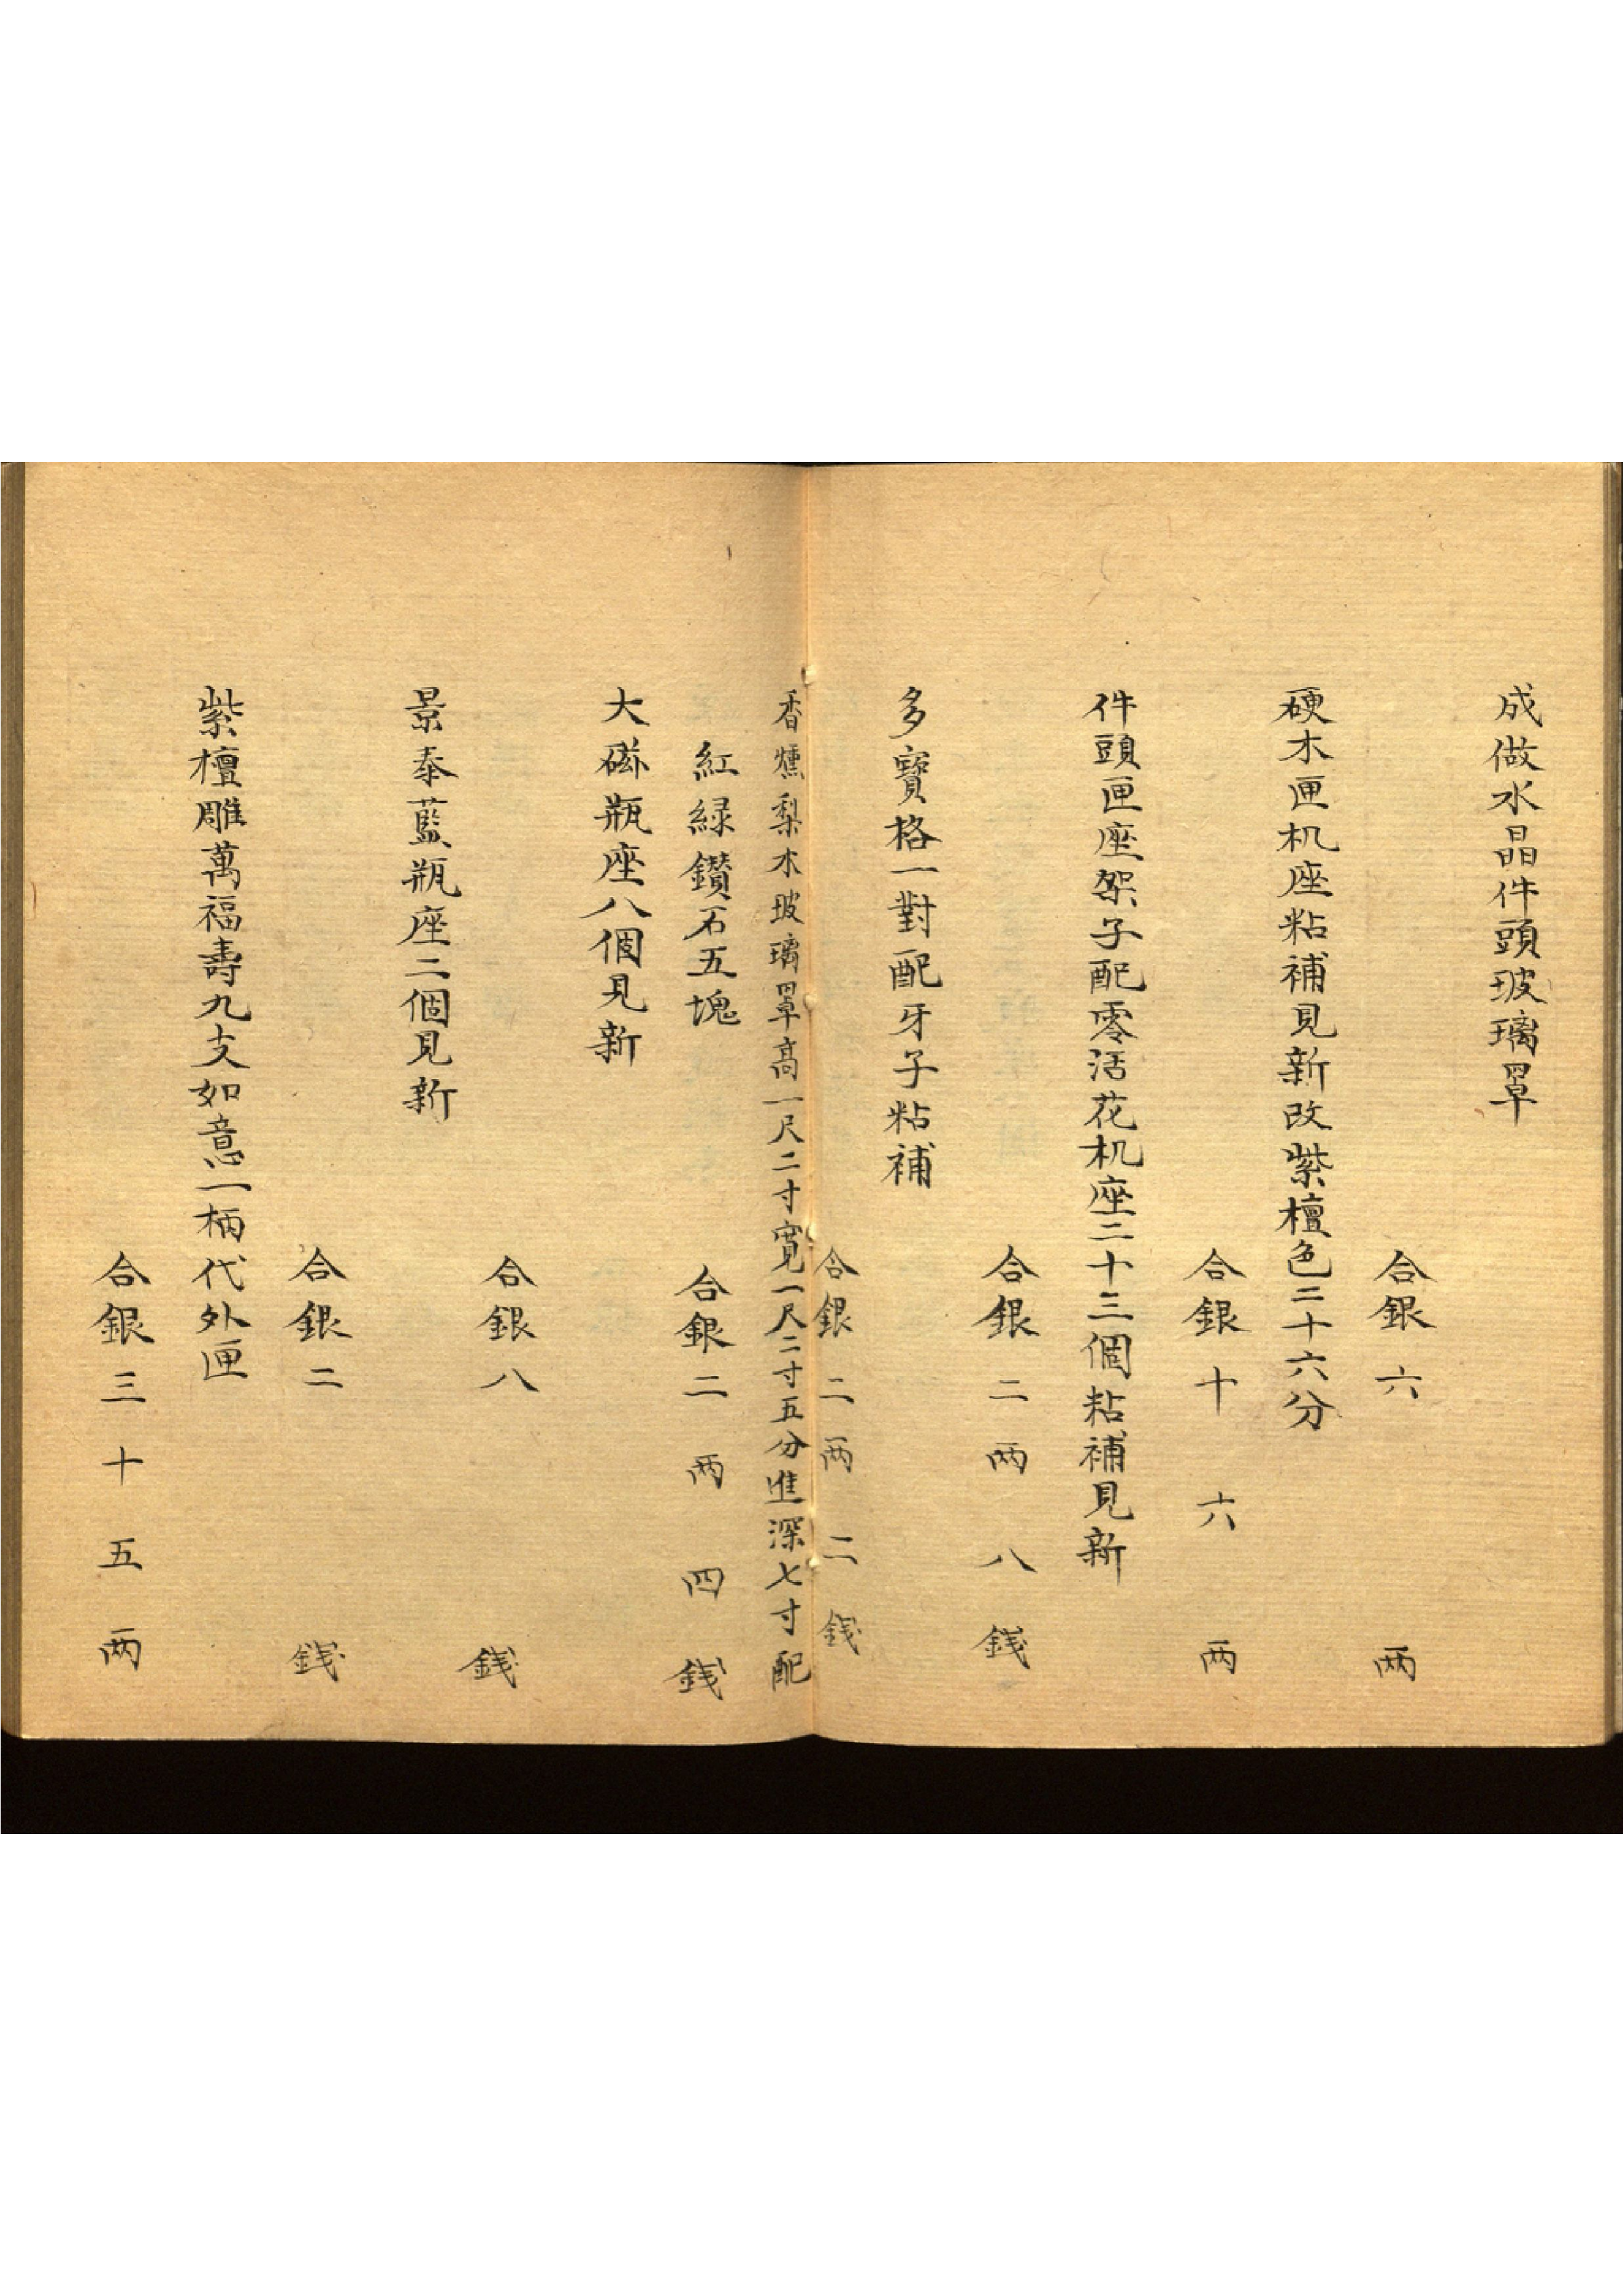 成做水晶件頭玻璃罩
合銀六兩
硬木匣机座粘補見新改紫檀色二十六分
合銀十六兩
件頭匣座架子配零活花机座二十三個粘補見新
合銀二兩八錢
多寶格一對配牙子粘補
合銀二兩二錢
香爐梨木玻璃罩高一尺二寸寬一尺二寸五分進深七寸配
紅緑鑽石五塊
合銀二兩四錢
大磁瓶座八個見新
合銀八錢
景泰藍瓶座二個見新
合銀二錢
紫檀雕萬福壽九支如意一柄代外匣
合銀三十五兩